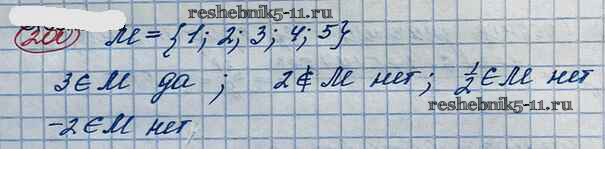 reshebnik5-11.ru
200 M = {1; 2; 3; 4; 5}
3 ∈ M да ; 2 ∉ M нет ; ½ ∈ M нет
reshebnik5-11.ru
-2 ∈ M нет